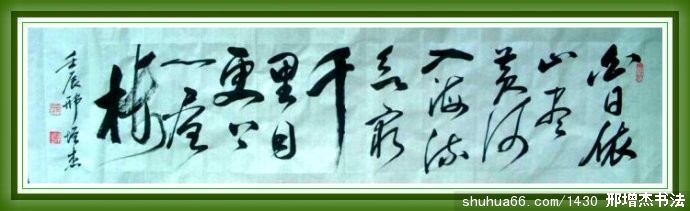 白日依
山尽
黄河
入海流
欲穷
千
里目
更上
一层
楼
壬辰邢增杰
shuhua66.com/1430 邢增杰书法